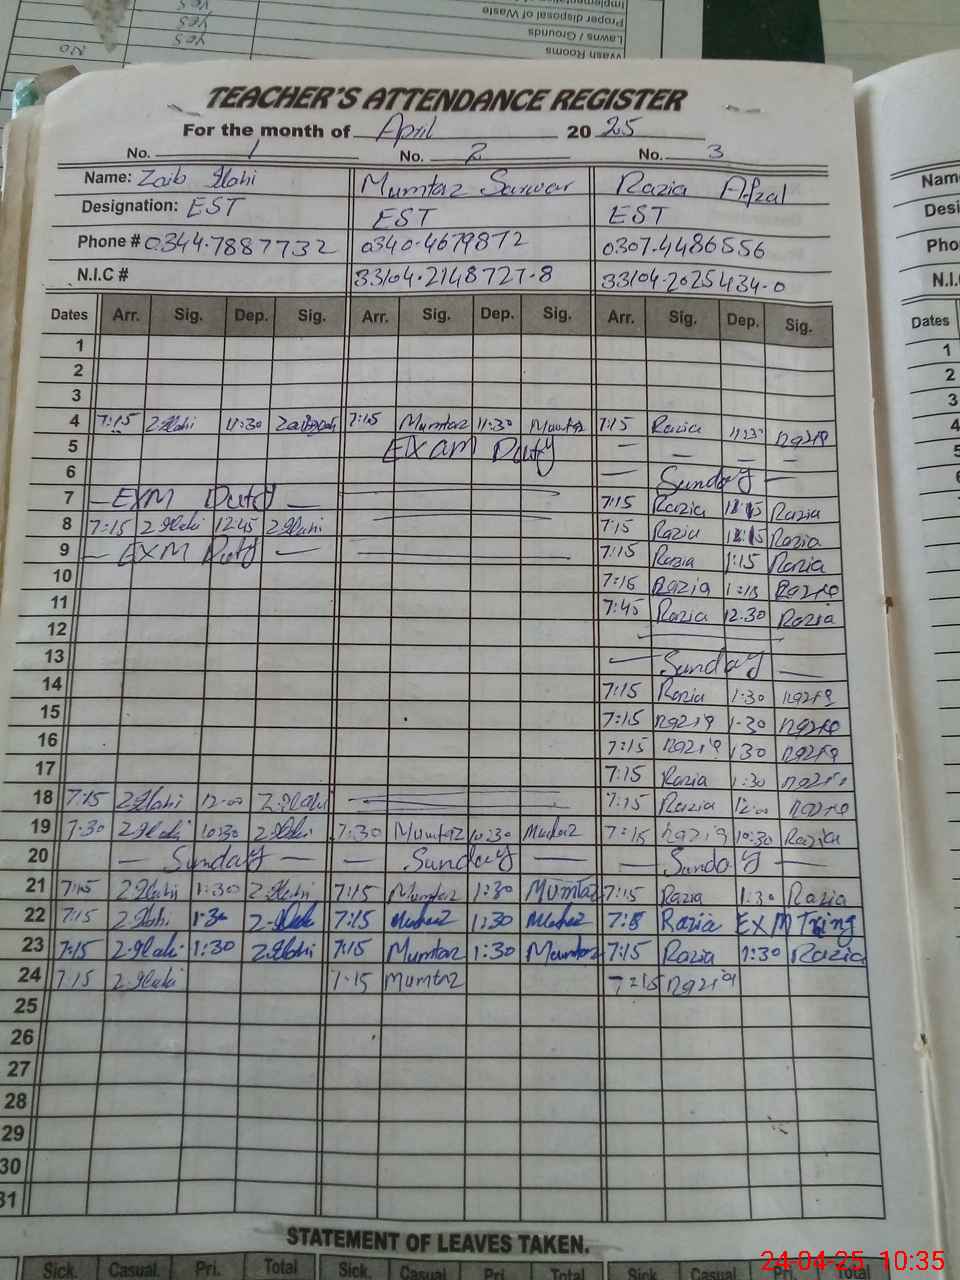 Implementation
YES
Proper disposal of Waste
YES
Lawns / Grounds
YES
Wash Rooms
NO
TEACHER'S ATTENDANCE REGISTER
For the month of April 2025
No. 1 No. 2 No. 3
Name: Zaib Ilahi Mumtaz Sarwar Razia Afzal
Designation: EST EST EST
Phone # 0344-7887732 0340-4679872 0307-4486556
N.I.C # 33104-2148727-8 33104-2025434-0
Dates Arr. Sig. Dep. Sig. Arr. Sig. Dep. Sig. Arr. Sig. Dep. Sig.
1
2
3
4 7:15 Z-Ilahi 11:30 7:15 Mumtaz 11:30 Mumtaz 7:15 Razia 11:30 Razia
5 EXAM Duty — — — —
6 — Sunday —
7 — EXM Duty — 7:15 Razia Razia
8 7:15 Z Ilahi 12:45 Z Ilahi 7:15 Razia Razia
9 — EXM Duty — 7:15 Razia 1:15 Razia
10 7:15 Razia 1:15 Razia
11 7:45 Razia 12:30 Razia
12
13 — Sunday —
14 7:15 Razia 1:30 Razia
15 7:15 Razia 1:30 Razia
16 7:15 Razia 1:30 Razia
17 7:15 Razia 1:30 Razia
18 7:15 Z Ilahi 12:00 Z Ilahi 7:15 Razia 12:00 Razia
19 7:30 Z Ilahi 10:30 Z Ilahi 7:30 Mumtaz 10:30 Mumtaz 7:15 Razia 10:30 Razia
20 — Sunday — — Sunday — — Sunday —
21 7:15 Z Ilahi 1:30 Z Ilahi 7:15 Mumtaz 1:30 Mumtaz 7:15 Razia 1:30 Razia
22 7:15 Z Ilahi 1:30 Z-Ilahi 7:15 Mumtaz 1:30 Mumtaz Razia EXM
23 7:15 Z-Ilahi 1:30 Z Ilahi 7:15 Mumtaz 1:30 Mumtaz 7:15 Razia 1:30 Razia
24 7:15 Z-Ilahi 7:15 Mumtaz 7:15 Razia
25
26
27
28
29
30
31
STATEMENT OF LEAVES TAKEN.
Sick. Casual. Pri. Total Sick. Casual. Pri. Total Sick. Casual. Pri. Total
Phon
N.I.C
Dates
1
2
3
4
5
6
7
24-04-25 10:35